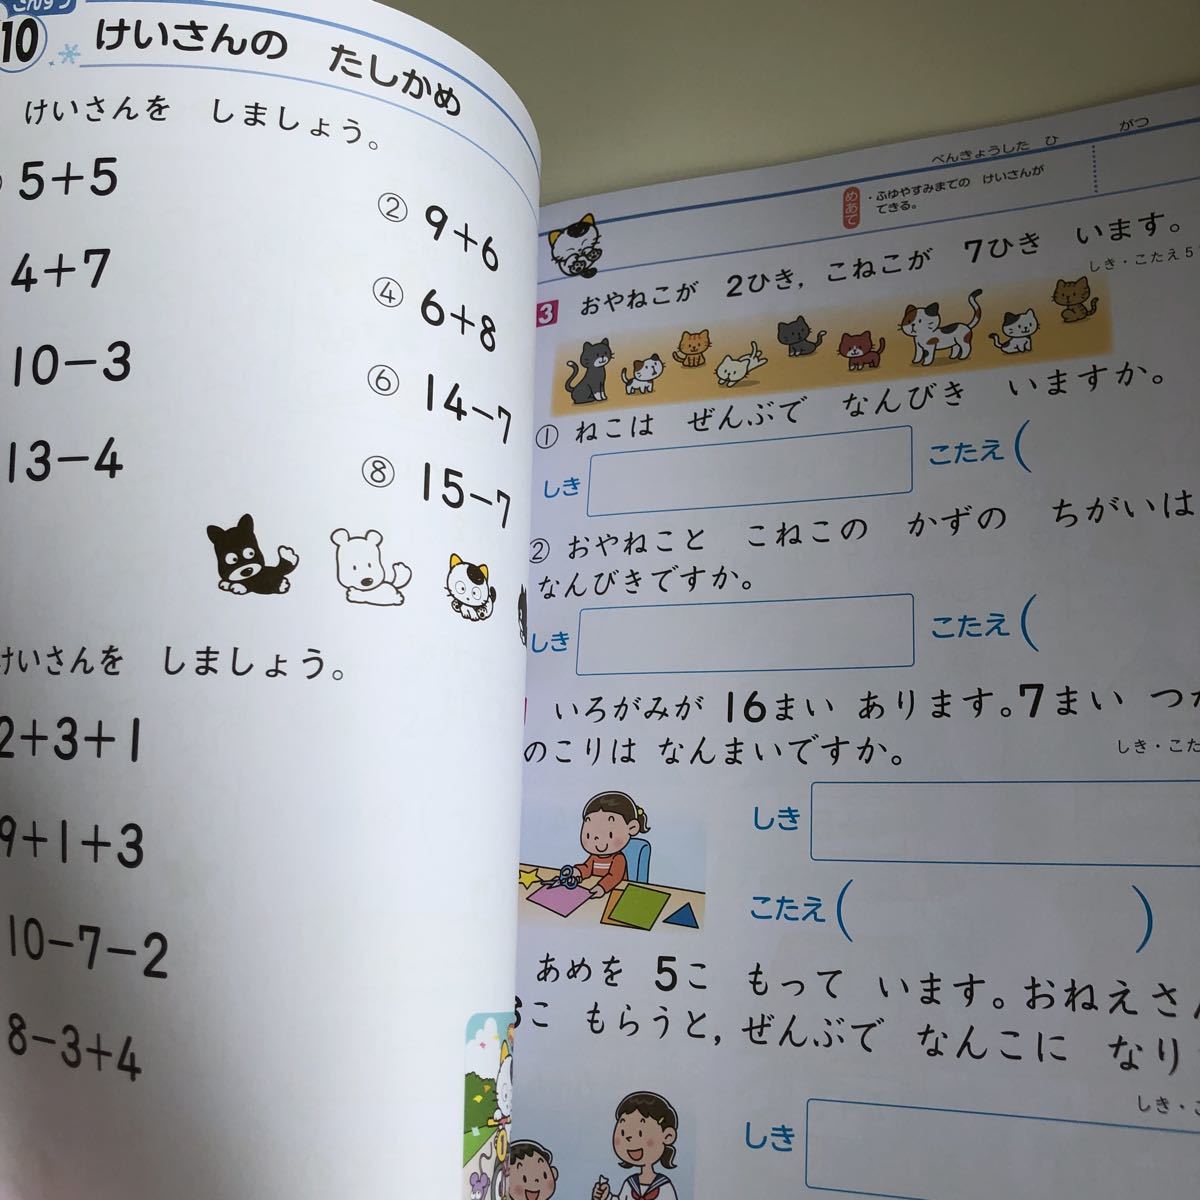 さんすう
10 けいさんの たしかめ
けいさんを しましょう。
5+5
② 9+6
4+7
④ 6+8
10-3
⑥ 14-7
13-4
⑧ 15-7
けいさんを しましょう。
2+3+1
9+1+3
10-7-2
8-3+4
べんきょうした ひ がつ
めあて ・ふゆやすみまでの けいさんが
できる。
3 おやねこが 2ひき, こねこが 7ひき います。
しき・こたえ5
① ねこは ぜんぶで なんびき いますか。
しき こたえ(
② おやねこと こねこの かずの ちがいは
なんびきですか。
しき こたえ(
いろがみが 16まい あります。7まい つか
のこりは なんまいですか。
しき・こた
しき
こたえ( )
あめを 5こ もって います。おねえさ
こ もらうと, ぜんぶで なんこに なり
しき・こ
しき